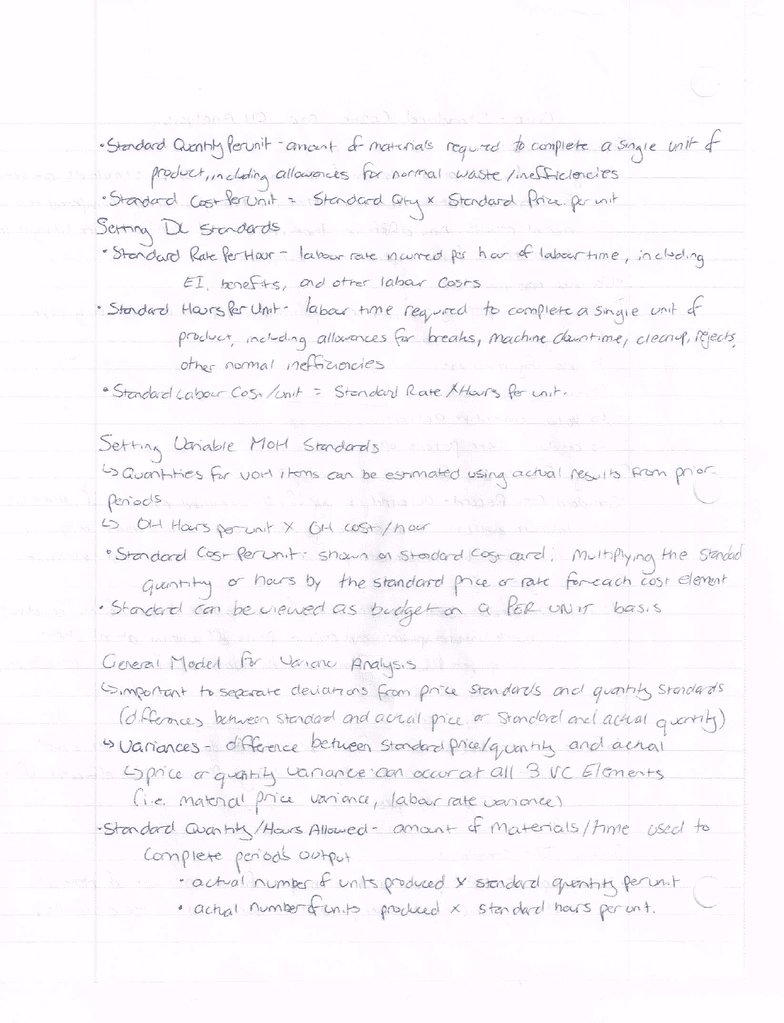 • Standard Quantity Per unit - amount of materials required to complete a single unit of
product, including allowances for normal waste/inefficiencies
• Standard Cost Per Unit = Standard Qty × Standard Price per unit
Setting DL Standards
• Standard Rate Per Hour - labour rate incurred per hour of labour time, including
EI, benefits, and other labour costs
• Standard Hours Per Unit - labour time required to complete a single unit of
product, including allowances for breaks, machine downtime, cleanup, rejects,
other normal inefficiencies
• Standard Labour Cost/Unit = Standard Rate × Hours per unit.
Setting Variable MOH Standards
↳ Quantities for VOH items can be estimated using actual results from prior
periods
↳ OH Hours per unit × OH cost/hour
• Standard Cost Per Unit: shown on standard cost card; multiplying the standard
quantity or hours by the standard price or rate for each cost element
• Standard can be viewed as budget on a PER UNIT basis
General Model for Variance Analysis
↳ important to separate deviations from price standards and quantity standards
(differences between standard and actual price or standard and actual quantity)
↳ Variances - difference between standard price/quantity and actual
↳ price or quantity variance can occur at all 3 VC Elements
(i.e. material price variance, labour rate variance)
• Standard Quantity/Hours Allowed - amount of materials/time used to
complete period's output
• actual number of units produced × standard quantity per unit
• actual number of units produced × standard hours per unit.